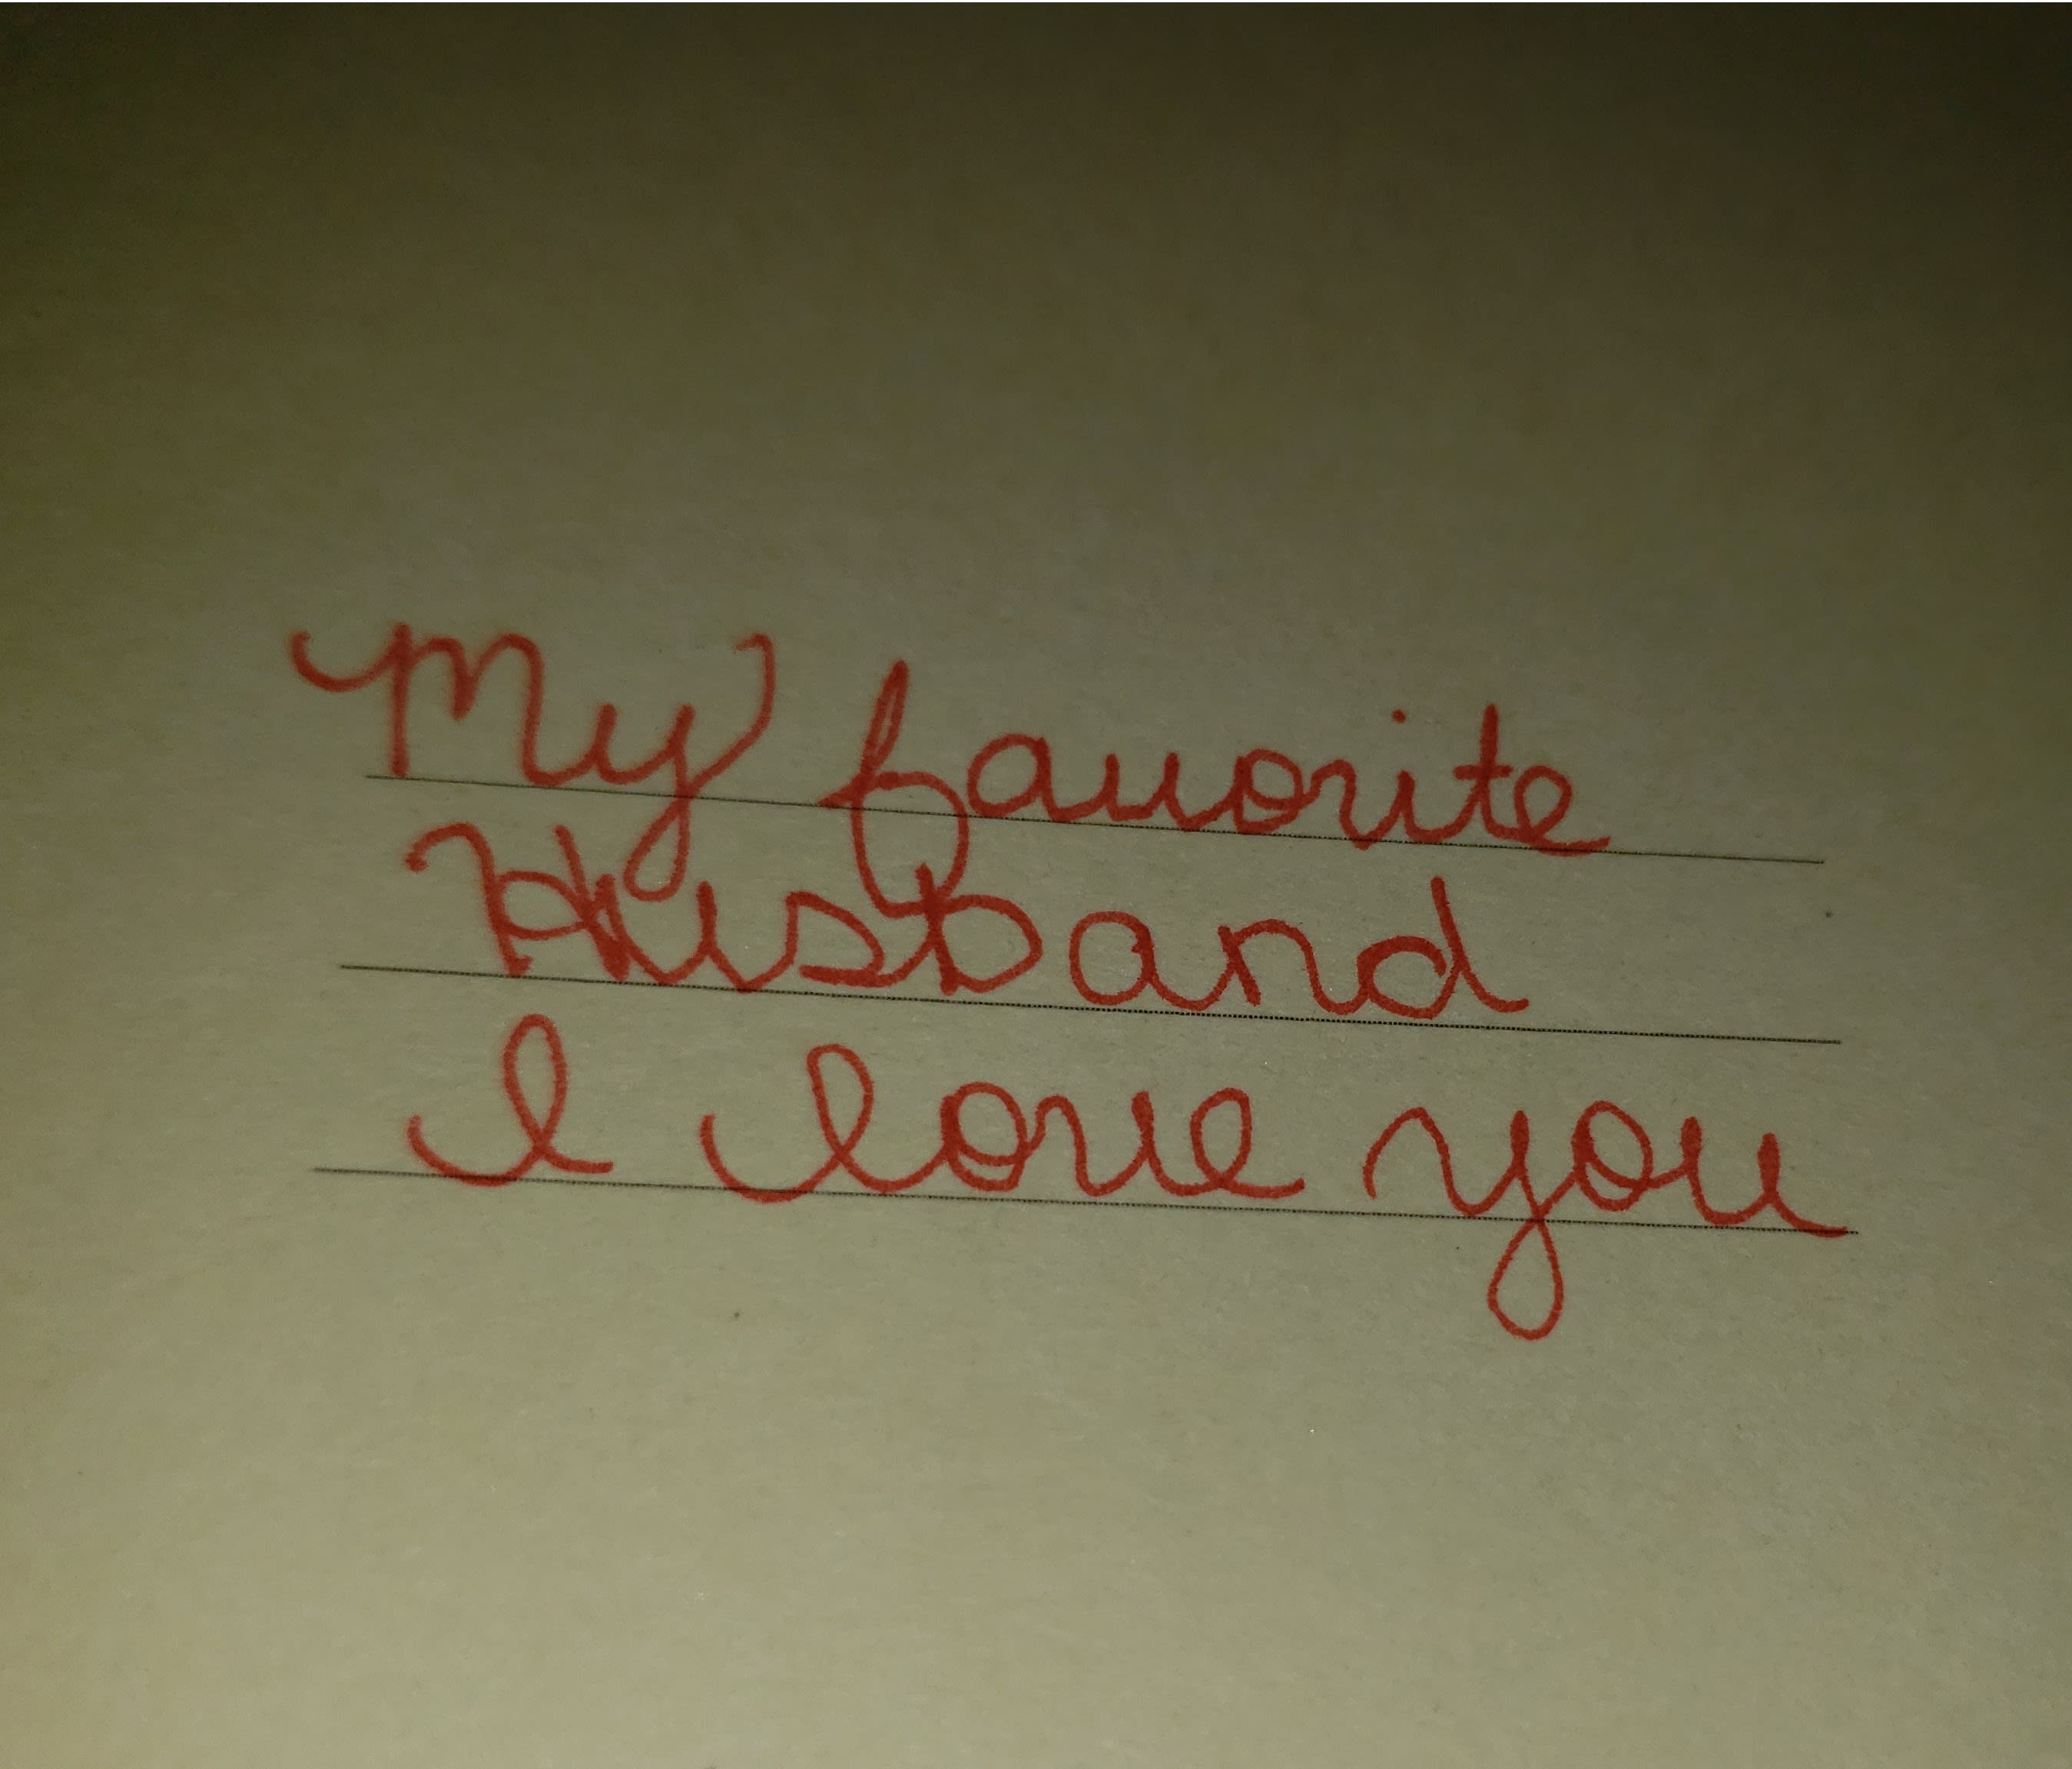 My favorite
Husband
I love you